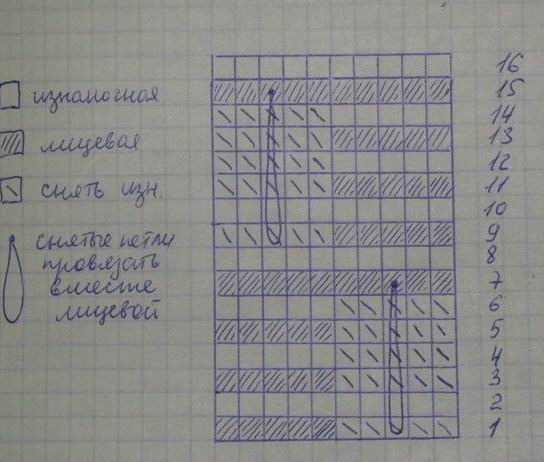 изнаночная
лицевая
снять изн.
снятые петли
провязать
вместе
лицевой
16
15
14
13
12
11
10
9
8
7
6
5
4
3
2
1